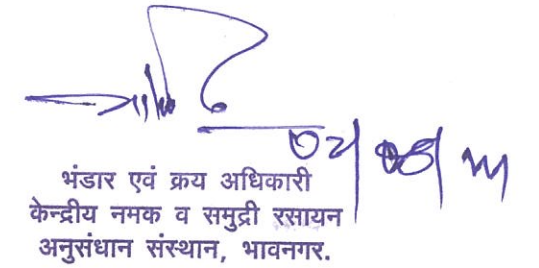 भंडार एवं क्रय अधिकारी
केन्द्रीय नमक व समुद्री रसायन
अनुसंधान संस्थान, भावनगर.